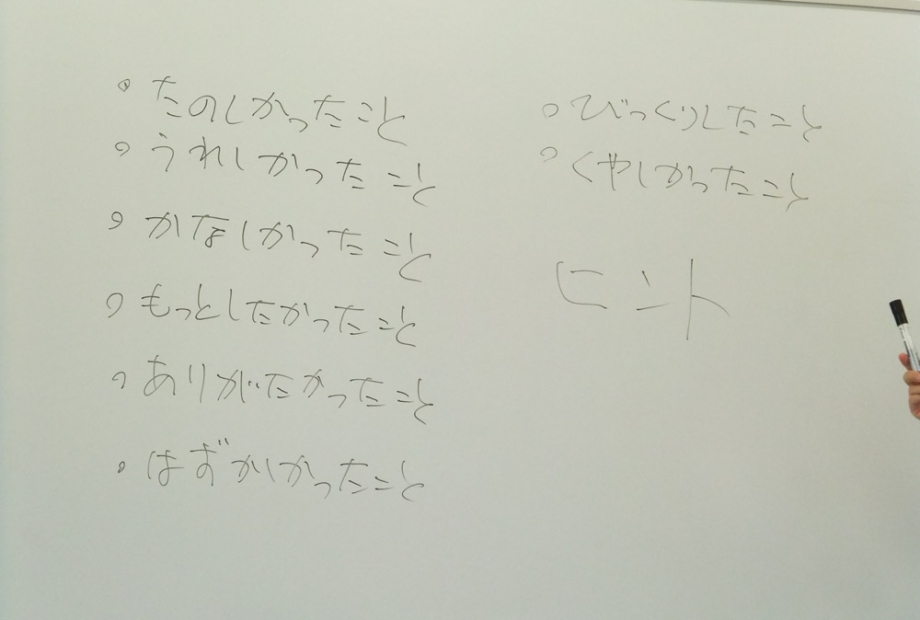 ○たのしかったこと
○うれしかったこと
○かなしかったこと
○もっとしたかったこと
○ありがたかったこと
○はずかしかったこと
○びっくりしたこと
○くやしかったこと
ヒント